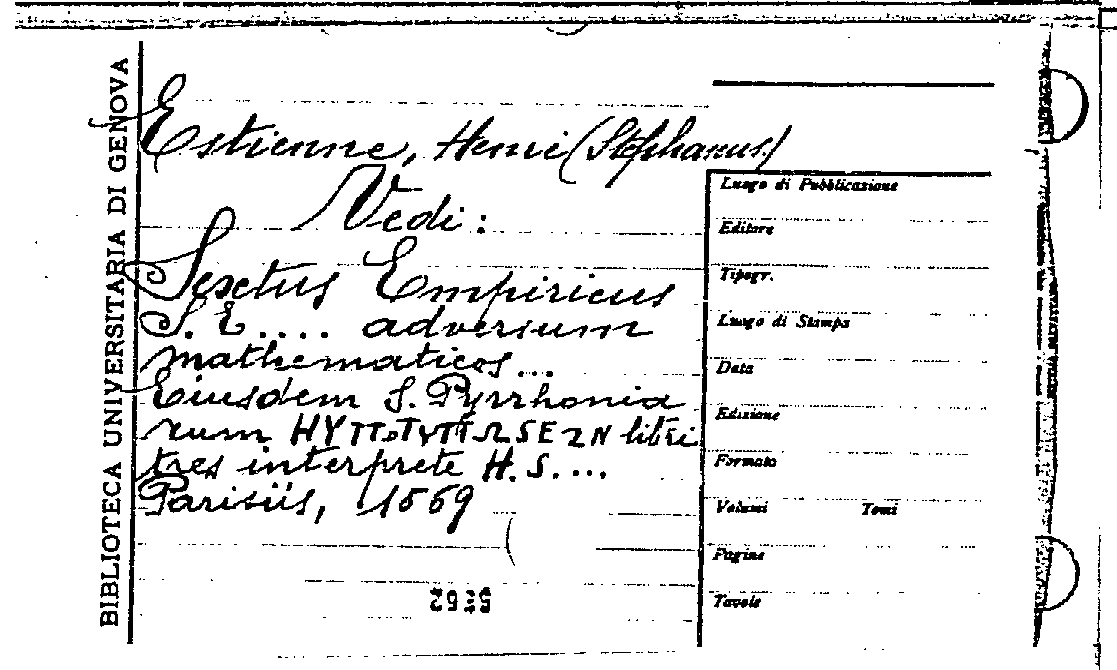 BIBLIOTECA UNIVERSITARIA DI GENOVA
Estienne, Henri (Stephanus)
Vedi:
Sextus Empiricus
S. E.... adversum
mathematicos...
Eiusdem S. Pyrrhonia
rum HYΠοTYΠΩSEΩN libri
tres interprete H. S....
Parisiis, 1569
Luogo di Pubblicazione
Editore
Tipogr.
Luogo di Stampa
Data
Edizione
Formato
Volumi Tomi
Pagine
Tavole